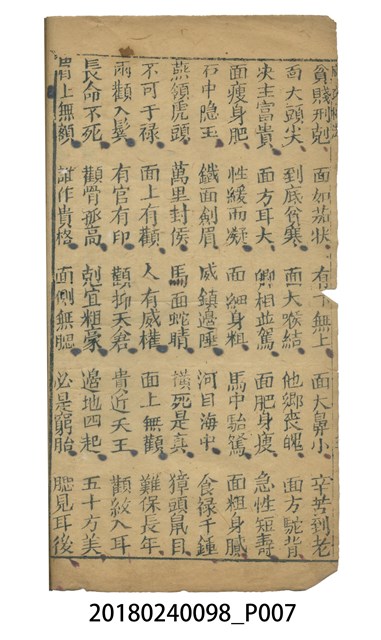 貧賤刑剋　面如茄狀　有下無上　面大鼻小　辛苦到老
面大頭尖　到底貧寒　面大喉結　他鄉喪魄　面方駝背
尖主富貴　面方耳大　卿相並篤　面肥身瘦　急性短壽
面瘦身肥　性緩而凝　面細身粗　馬中駘篤　面粗身膩
石中隐玉　鐵面劍眉　威鎮邊陲　河目海中　食禄千鍾
燕頷虎頭　萬里封侯　馬面蛇睛　橫死是真　獐頭鼠目
不可于禄　面上有顴　人有威權　面上無顴　難保長年
兩顴入鬢　有官有印　顴抑天倉　貴近天王　顴紋入耳
長命不死　顴骨孤高　剋宜粗豪　邊地四起　五十方美
胃上無額　謙作貴格　面側無腮　必是窮胎　腮見耳後
20180240098_P007